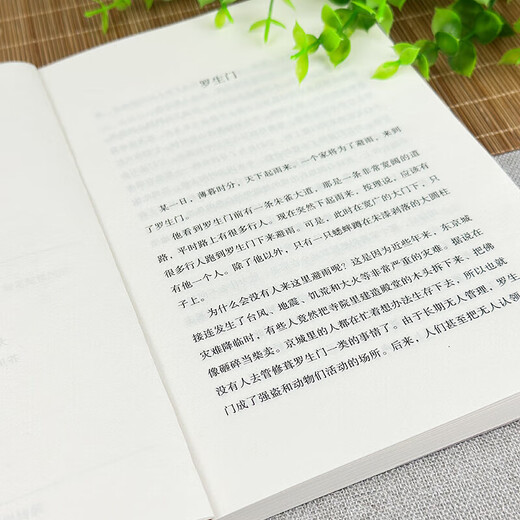 罗生门
某一日，薄暮时分，天下起雨来，一个家将为了避雨，来到
了罗生门。
他看到罗生门前有一条朱雀大道，那是一条非常宽阔的道
路，平时路上有很多行人。现在突然下起雨来，按理说，应该有
很多行人跑到罗生门下来避雨。可是，此时在宽广的大门下，只
有他一个人。除了他以外，只有一只蟋蟀蹲在朱漆剥落的大圆柱
子上。
为什么会没有人来这里避雨呢？这是因为近些年来，东京城
接连发生了台风、地震、饥荒和大火等非常严重的灾难。据说在
灾难降临时，有些人竟然把寺院里建造殿堂的木头拆下来、把佛
像砸碎当柴卖。京城里的人都在忙着想办法生存下去，所以也就
没有人去管修葺罗生门一类的事情了。由于长期无人管理，罗生
门成了强盗和动物们活动的场所。后来，人们甚至把无人认领